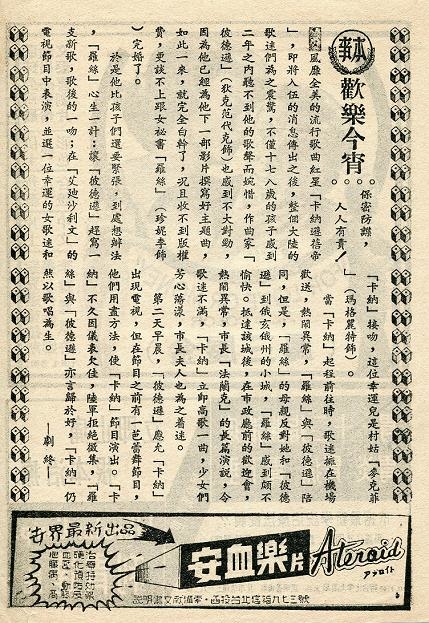 本事
歡樂今宵
保密防諜，
人人有責！
風靡全美的流行歌曲紅星「卡納遜蓓帝
」，即將入伍的消息傳出之後，整個大陸的
歌迷們為之震驚，不僅十七八歲的孩子感到
二年之內聽不到他的歌聲而惋惜，作曲家「
彼德遜」（狄克范代克飾）也感到不大對勁，
因為他已經為他下一部影片撰寫好主題曲，
如此一來，就完全白幹了，況且收不到版權
費，更談不上跟女秘書「羅絲」（珍妮李飾
）完婚了。
於是他比孩子們還要緊張，到處想辦法
，「羅絲」心生一計：讓「彼德遜」趕寫一
支新歌，歌後的一吻；在「艾廸沙利文」的
電視節目中表演，並選一位幸運的女歌迷和
「卡納」接吻，這位幸運兒是村姑「麥克菲
」（瑪格麗特飾）。
當「卡納」起程前往時，歌迷擁在機場
歡送，熱鬧異常，「羅絲」與「彼德遜」陪
同，但是，「羅絲」的母親反對她和「彼德
遜」到俄亥俄州的小城，「羅絲」感到頗不
愉快。抵達該城後，在市政廳前的歡迎會，
熱鬧異常，市長「法蘭克」的長篇演說，令
歌迷不滿，「卡納」立即高歌一曲，少女們
芳心蕩漾，市長夫人也為之着迷。
第二天早晨，「彼德遜」應允「卡納」
出現電視，但在節目之前有一芭蕾舞節目，
他們用盡方法，使「卡納」節目演出。「卡
納」不久因儀表欠佳，陸軍拒絕徵集，「羅
絲」與「彼德遜」亦言歸於好，「卡納」仍
然以歌唱為生。
—劇終—
世界最新出品
治療特効藥
硬化預防及
血壓、動脈
心臟病、高
安血樂片
Ateroid
アテロイト
說明書文献備索・函投台北信箱九七三號